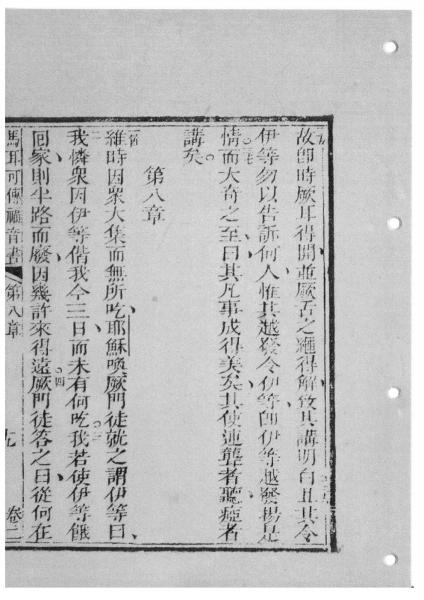 故卽時厥耳得開並厥舌之繩得解致其講明白且其令
伊等勿以告訴何人惟其越發令伊等卽伊等越發揚是
情而大奇之至曰其凡事成得美矣其使連聾者聽瘂者
講矣
第八章
維時因衆大集而無所吃耶穌喚厥門徒就之謂伊等曰
我憐衆因伊等偕我今三日而未有何吃我若使伊等餓
回家則半路而廢因幾許來得遠厥門徒答之曰從何在
馬耳可傳福音書 第八章 九 卷二